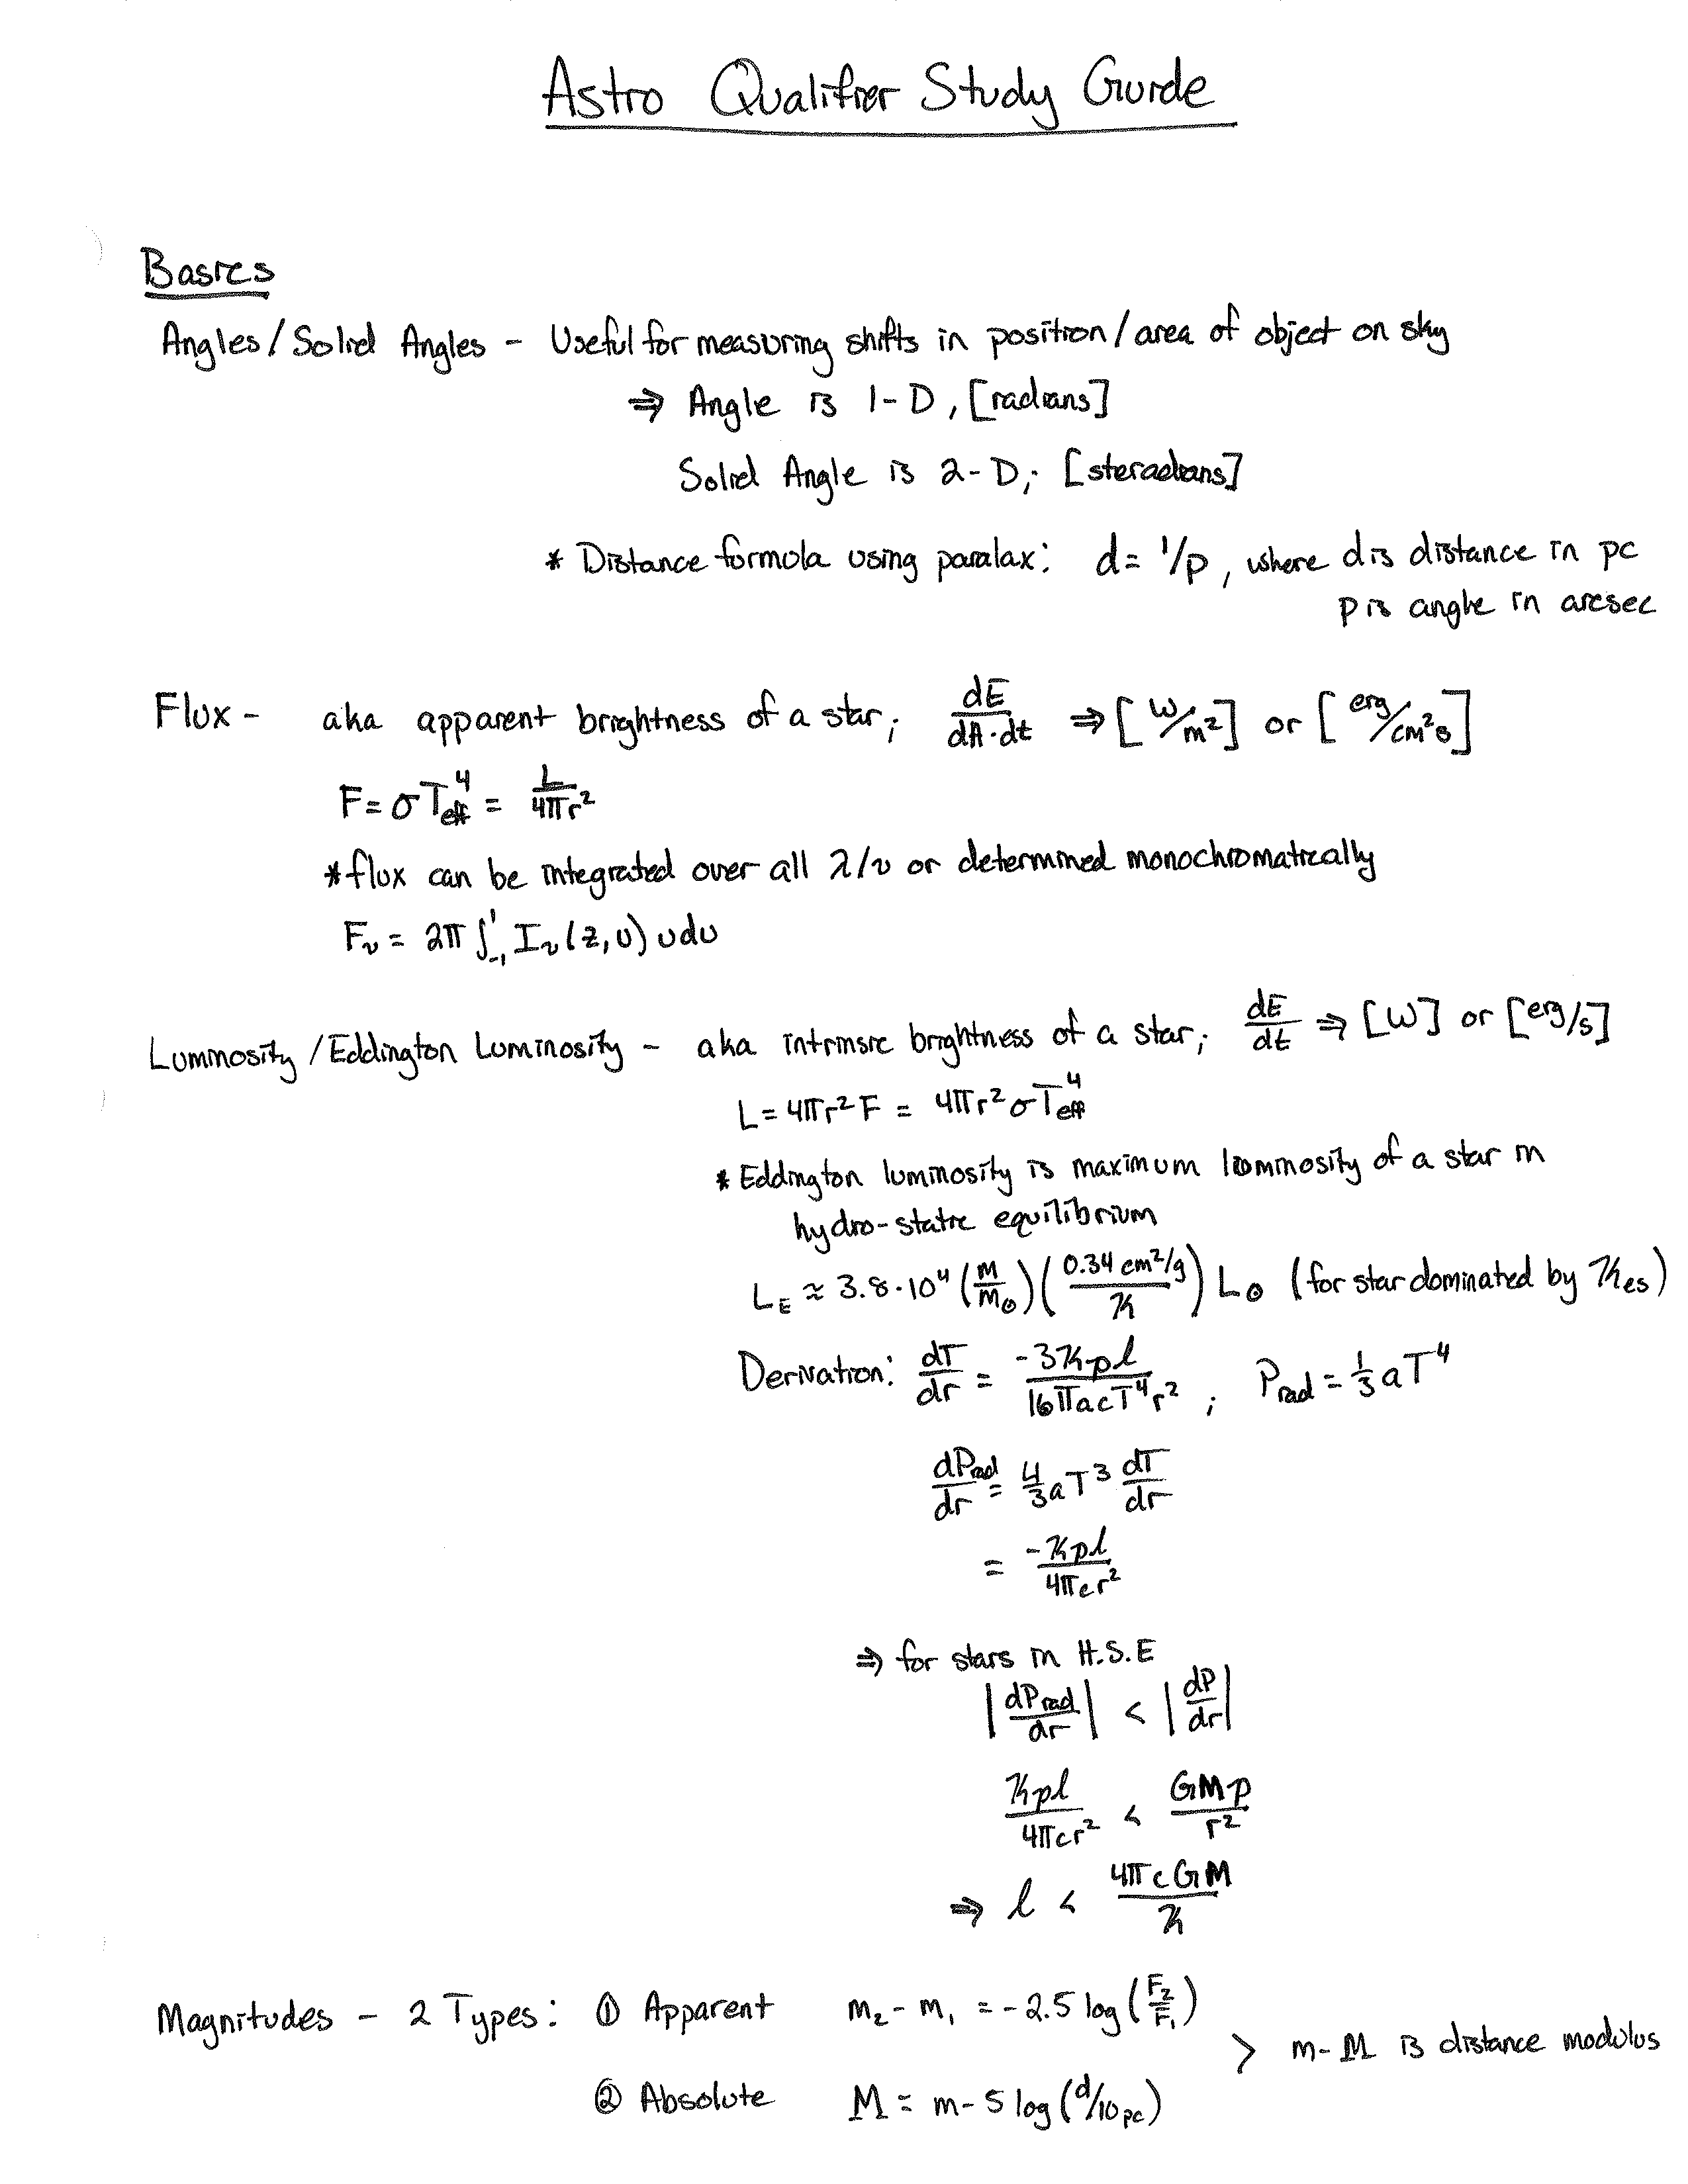 Astro Qualifier Study Guide
Basics
Angles/Solid Angles - Useful for measuring shifts in position/area of object on sky
⇒ Angle is 1-D, [radians]
Solid Angle is 2-D; [steradians]
* Distance formula using paralax: d = 1/p, where d is distance in pc
p is angle in arcsec
Flux - aka apparent brightness of a star; dE/dA·dt ⇒ [W/m²] or [erg/cm²s]
F = σT_eff⁴ = L/4πr²
*flux can be integrated over all λ/ν or determined monochromatically
F_ν = 2π ∫₋₁¹ I_ν(z,u) u du
Luminosity/Eddington Luminosity - aka intrinsic brightness of a star; dE/dt ⇒ [W] or [erg/s]
L = 4πr²F = 4πr²σT_eff⁴
* Eddington luminosity is maximum luminosity of a star in
hydro-static equilibrium
L_E ≈ 3.8·10⁴ (M/M⊙)(0.34 cm²/g / κ) L⊙ (for star dominated by κ_es)
Derivation: dT/dr = -3κρl/16πacT⁴r² ; P_rad = 1/3 aT⁴
dP_rad/dr = 4/3 aT³ dT/dr
= -κρl/4πcr²
⇒ for stars in H.S.E
|dP_rad/dr| < |dP/dr|
κρl/4πcr² < GMρ/r²
⇒ l < 4πcGM/κ
Magnitudes - 2 Types: ① Apparent m₂ - m₁ = -2.5 log(F₂/F₁)
> m-M is distance modulus
② Absolute M = m - 5 log(d/10pc)